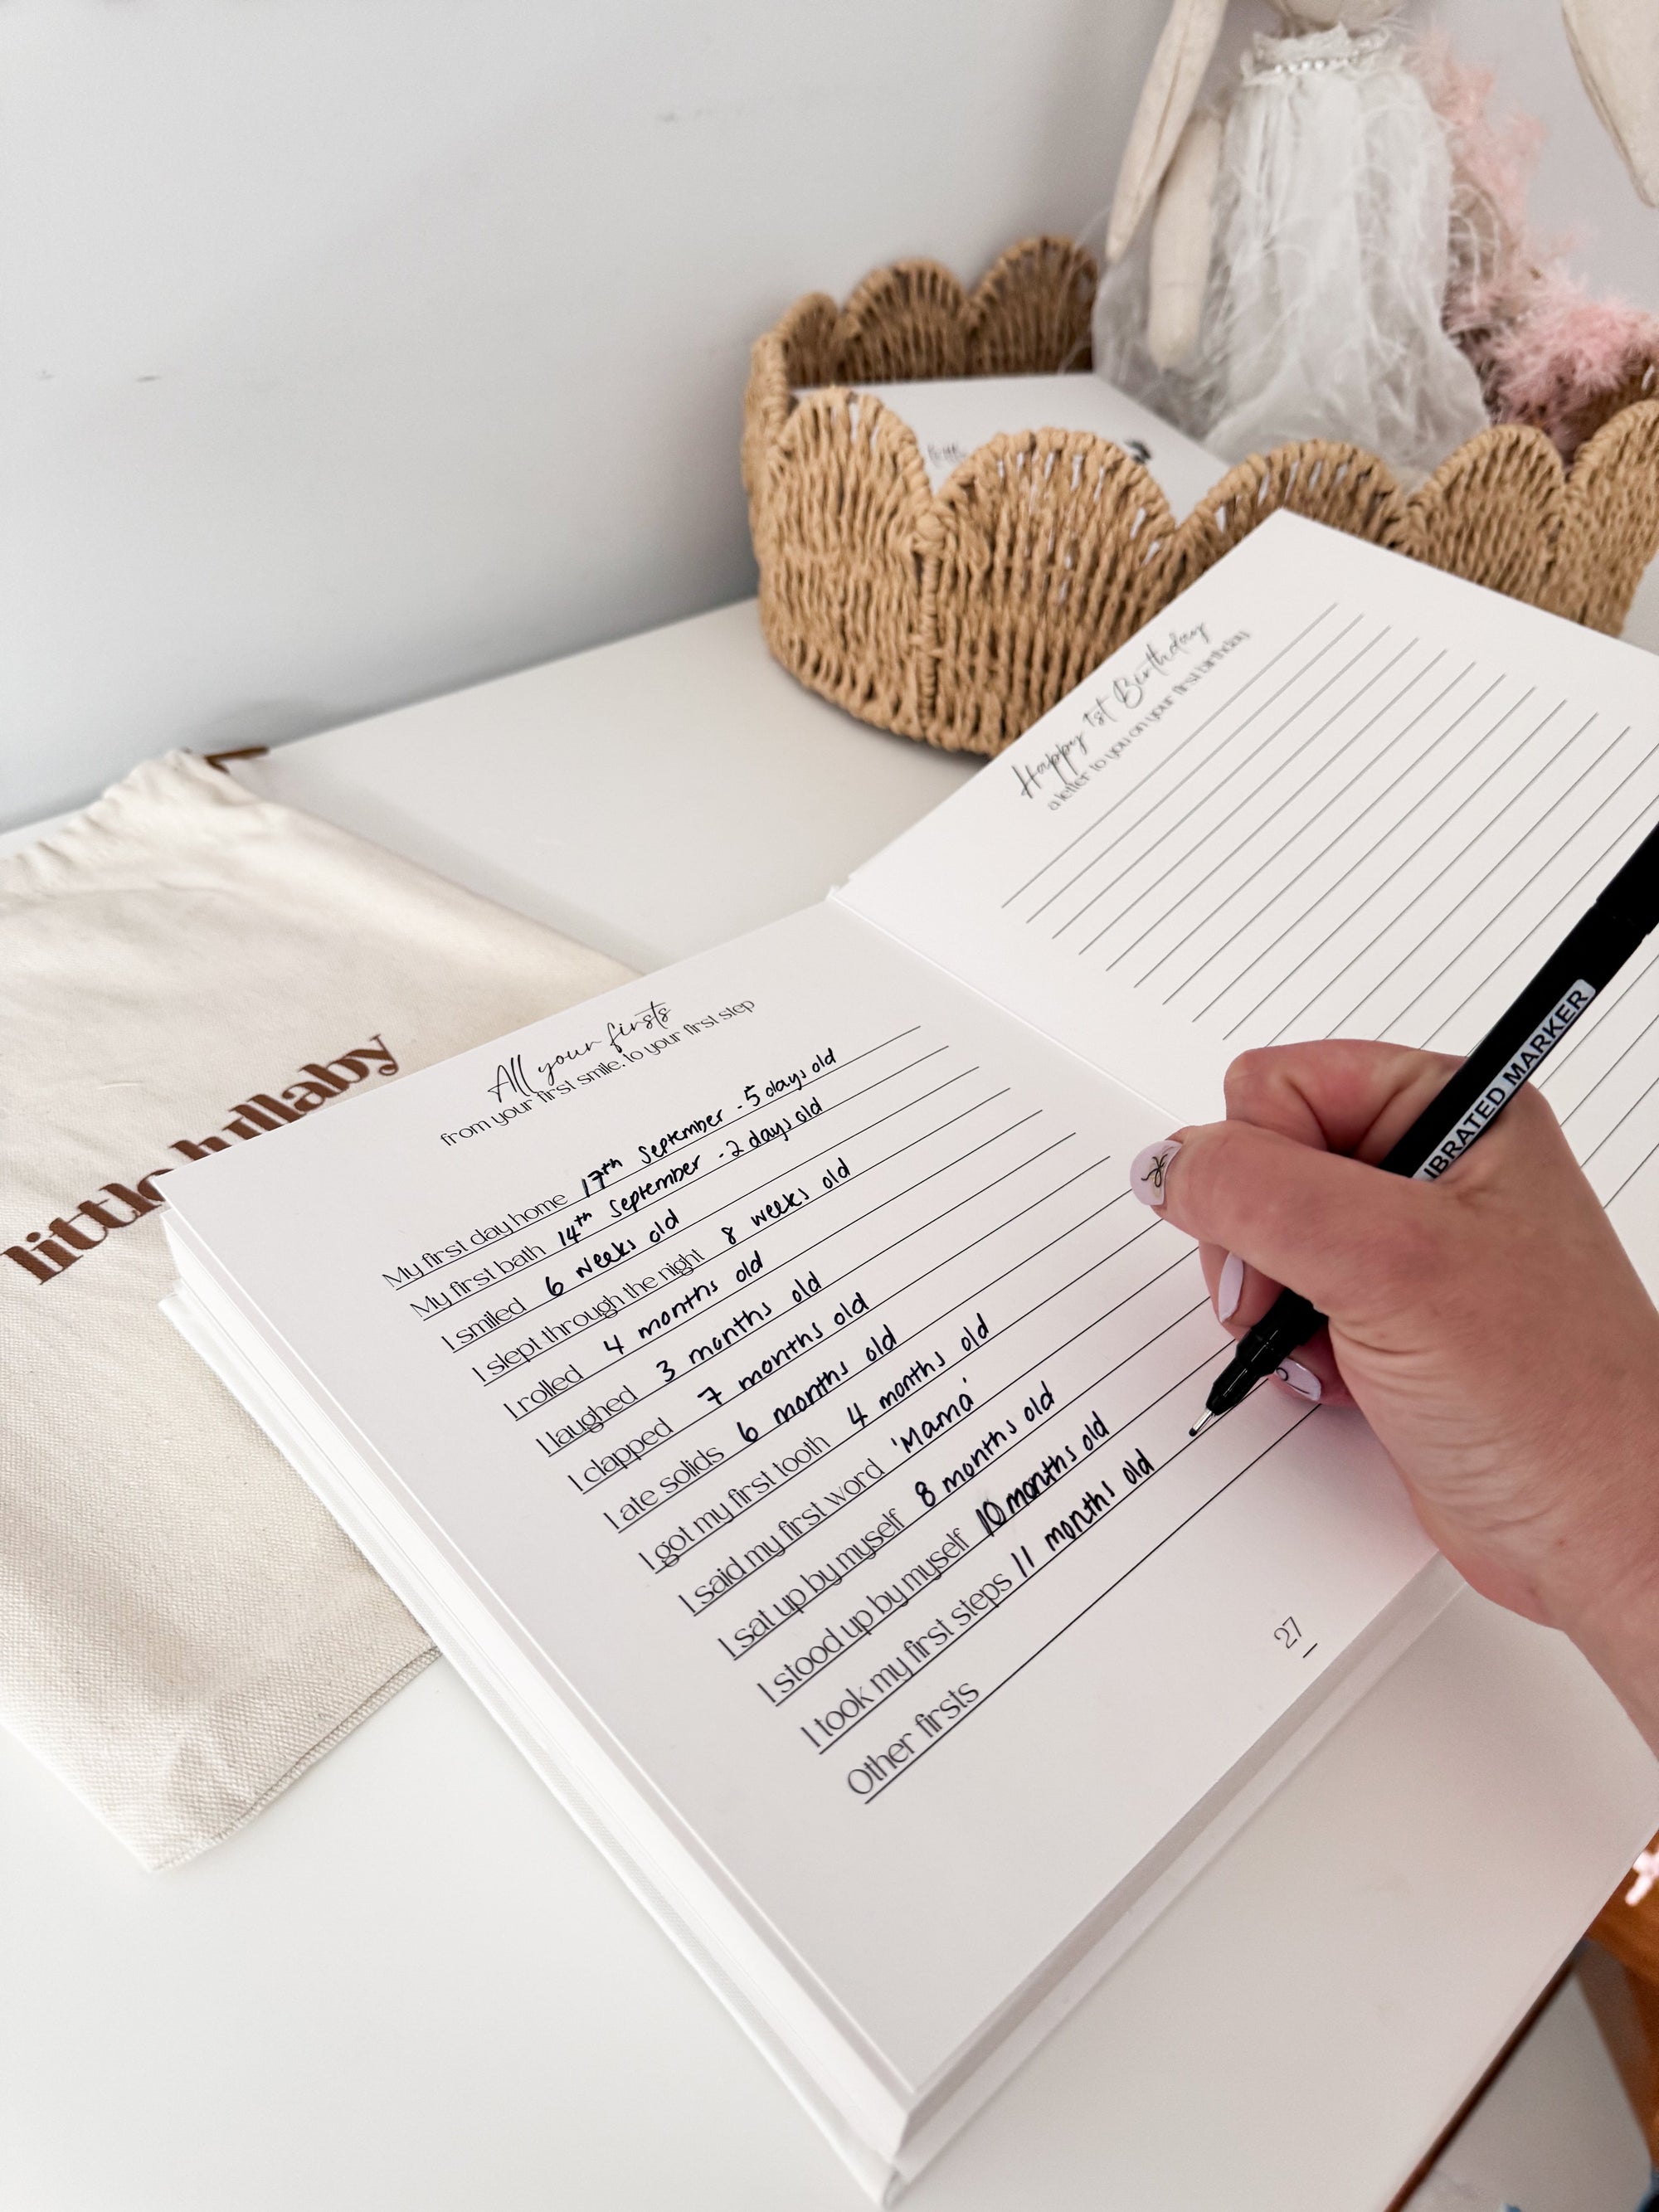 little lullaby
All your firsts
from your first smile, to your first step
My first day home 17th September - 5 days old
My first bath 14th September - 2 days old
I smiled 6 weeks old
I slept through the night 8 weeks old
I rolled 4 months old
I laughed 3 months old
I clapped 7 months old
I ate solids 6 months old
I got my first tooth 4 months old
I said my first word 'Mama'
I sat up by myself 8 months old
I stood up by myself 10 months old
I took my first steps 11 months old
Other firsts
27
Happy 1st Birthday
a letter to you on your first birthday
IBRATED MARKER